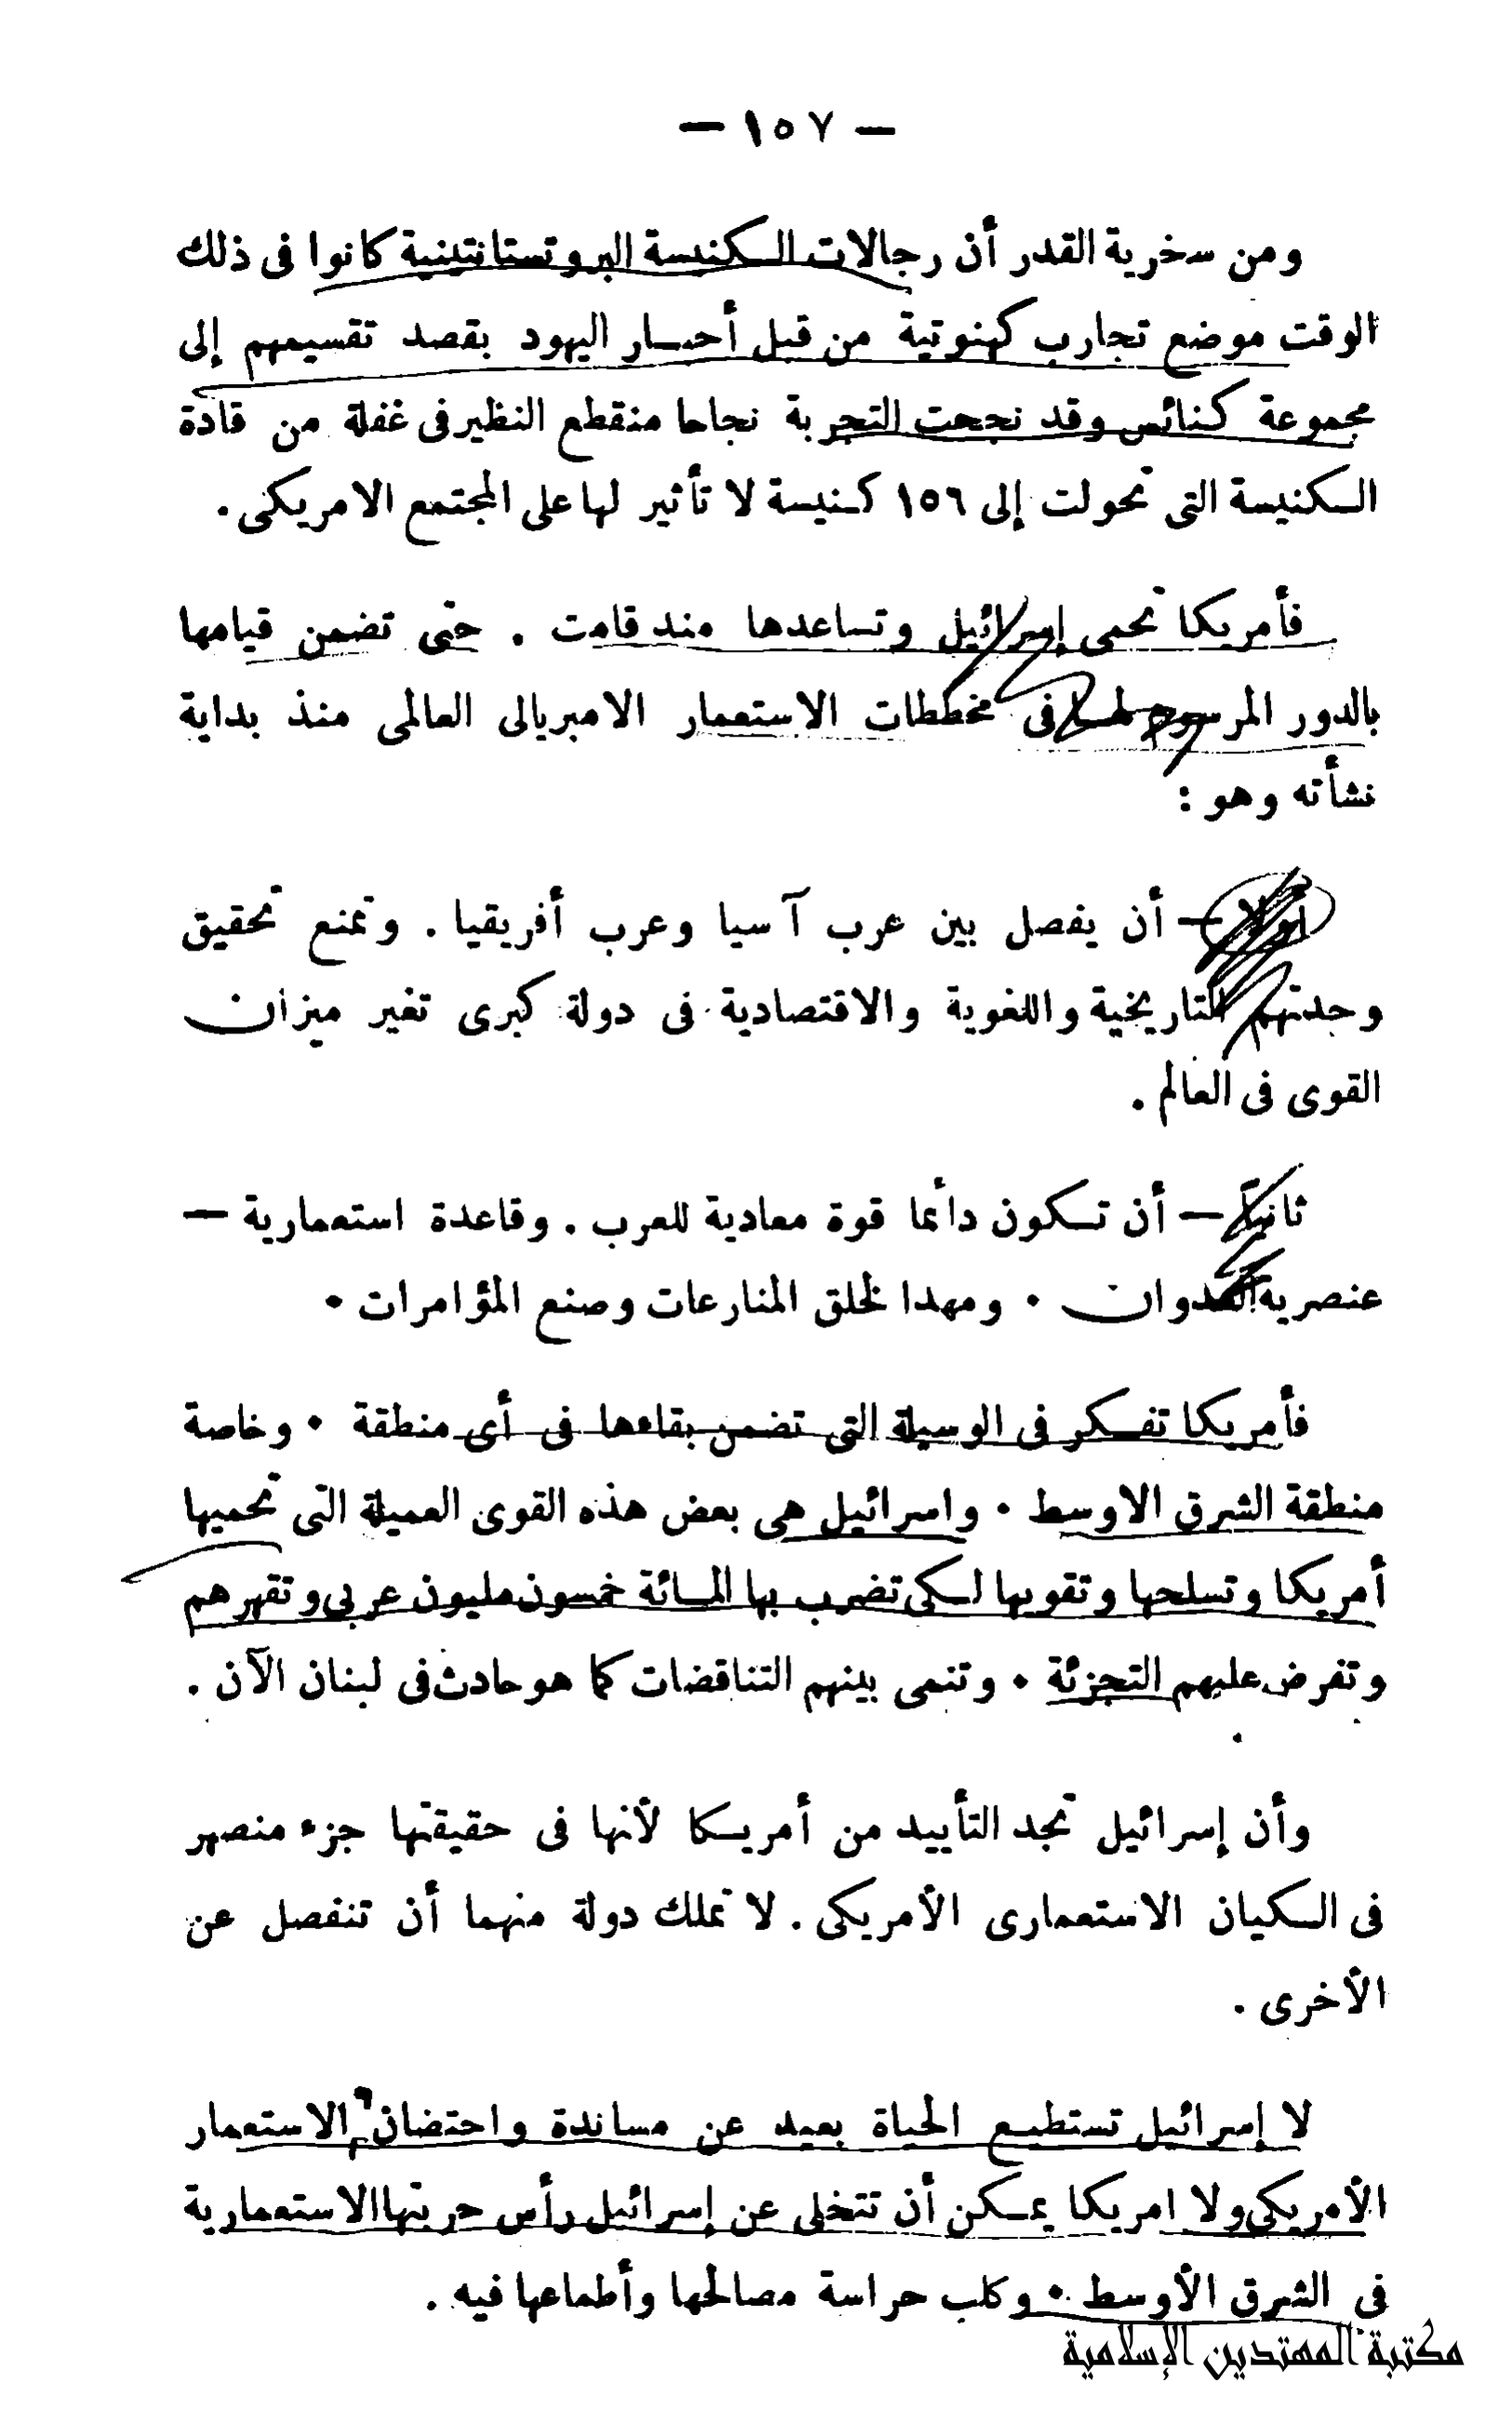 — ١٥٧ —
ومن سخرية القدر أن رجالات الكنيسة البروتستانتينية كانوا فى ذلك
الوقت موضع تجارب كهنوتية من قبل أحبار اليهود بقصد تقسيمهم إلى
مجموعة كنائس وقد نجحت التجربة نجاحا منقطع النظير فى غفلة من قادة
الكنيسة التى تحولت إلى ١٥٦ كنيسة لا تأثير لها على المجتمع الامريكى .
فأمريكا تحمى إسرائيل وتساعدها منذ قامت . حتى تضمن قيامها
بالدور المرسوم لها فى مخططات الاستعمار الامبريالى العالمى منذ بداية
نشأته وهو :
أولا — أن يفصل بين عرب آسيا وعرب أفريقيا . وتمنع تحقيق
وحدتهم التاريخية واللغوية والاقتصادية فى دولة كبرى تغير ميزان
القوى فى العالم .
ثانيا — أن تكون دائما قوة معادية للعرب . وقاعدة استعمارية —
عنصرية العدوان . ومهدا لخلق المنارعات وصنع المؤامرات .
فأمريكا تفكر فى الوسيلة التى تضمن بقاءها فى أى منطقة . وخاصة
منطقة الشرق الاوسط . واسرائيل هى بعض هذه القوى العميلة التى تحميها
أمريكا وتسلحها وتقويها لكى تضرب بها المائة خمسون مليون عربى وتقهرهم
وتفرض عليهم التجزئة . وتنمى بينهم التناقضات كما هو حادث فى لبنان الآن .
وأن إسرائيل تجد التأييد من أمريكا لأنها فى حقيقتها جزء منصهر
فى الكيان الاستعمارى الأمريكى . لا تملك دولة منهما أن تنفصل عن
الأخرى .
لا إسرائيل تستطيع الحياة بعيد عن مساندة واحتضان الاستعمار
الأمريكى ولا امريكا يمكن أن تتخلى عن إسرائيل رأس حربتها الاستعمارية
فى الشرق الأوسط . وكلب حراسة مصالحها وأطماعها فيه .
مكتبة المهتدين الإسلامية